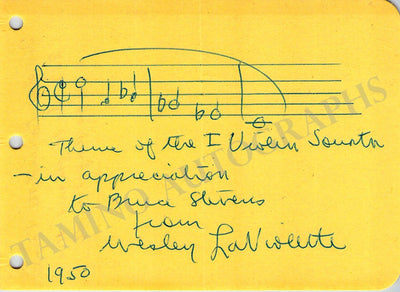 Theme of the I Violin Sonata
– in appreciation
to Bruce Stevens
from
Wesley LaViolette
1950
TAMINO AUTOGRAPHS